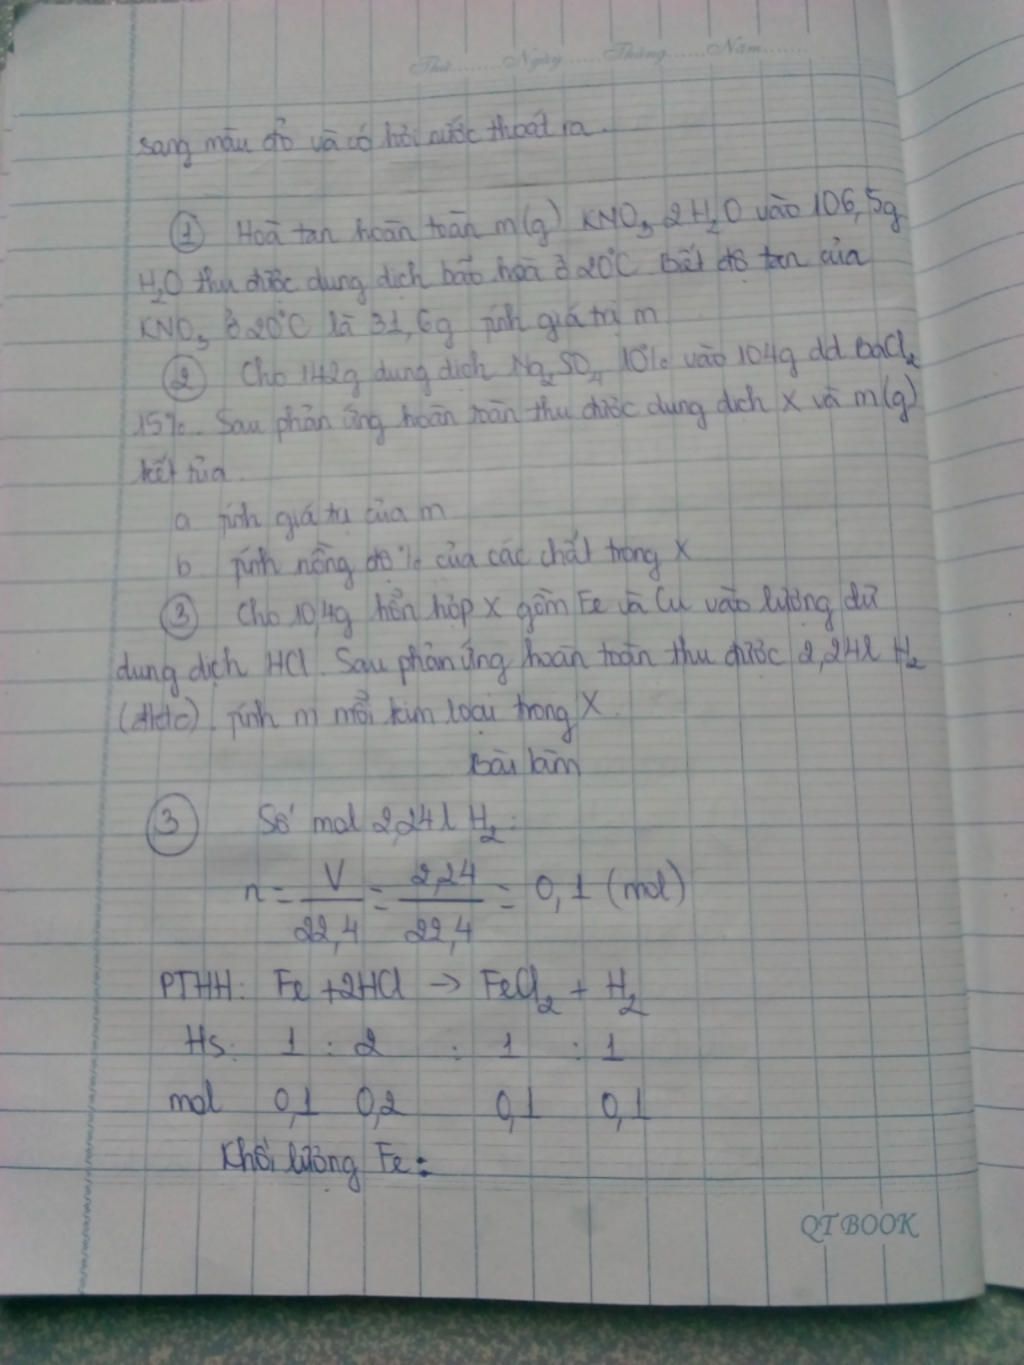 Thứ........Ngày........Tháng........Năm........
sang màu đỏ và có hơi nước thoát ra.
① Hoà tan hoàn toàn m(g) KNO₃ 2H₂O vào 106,5g
H₂O thu được dung dịch bão hoà ở 20°C Biết độ tan của
KNO₃ ở 20°C là 31,6g tính giá trị m
② Cho 142g dung dịch Na₂SO₄ 10% vào 104g dd BaCl₂
15%. Sau phản ứng hoàn toàn thu được dung dịch X và m(g)
kết tủa.
a tính giá trị của m
b tính nồng độ % của các chất trong X
③ Cho 10,4g hổn hợp X gồm Fe và Cu vào lượng dư
dung dịch HCl. Sau phản ứng hoàn toàn thu được 2,24l H₂
(đktc). tính m mổi kim loại trong X.
Bài làm
③ Số mol 2,24l H₂:
n = V/22,4 = 2,24/22,4 = 0,1 (mol)
PTHH: Fe + 2HCl → FeCl₂ + H₂
Hs: 1 : 2 : 1 : 1
mol 0,1 0,2 0,1 0,1
Khối lượng Fe:
QT BOOK